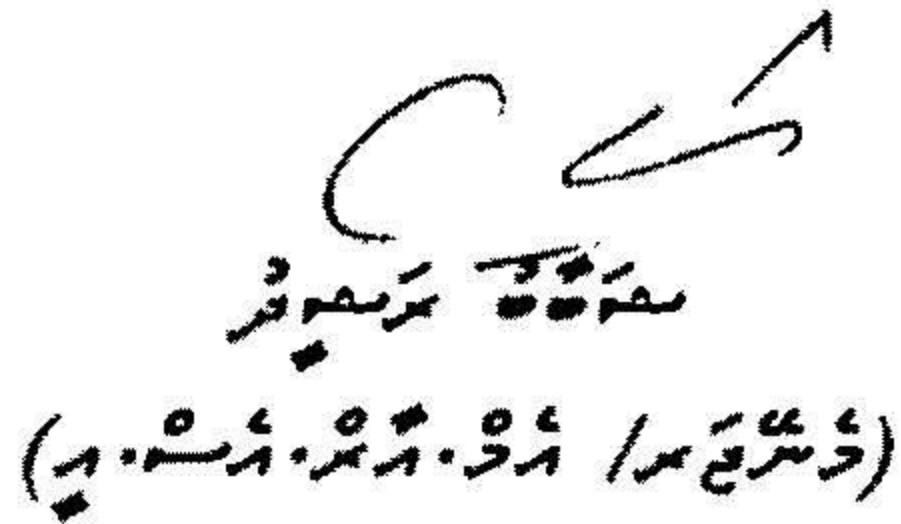 ޝަބާބު ރަޝީދު
(މެނޭޖަރ/ އެމް.އާރް.އެސް.އީ)